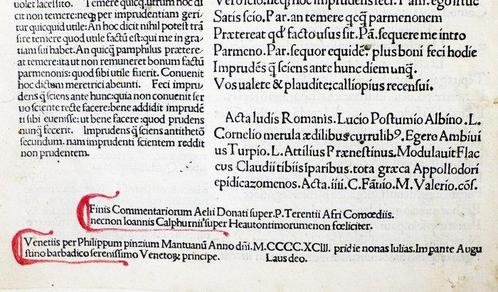 uolet lacessito. Totum autem hoc di
cit neq; per imprudentiam geri
tur quicquid utile. An hoc nolit tra
sire temere quod utile factu est mihi
tã sui habet. An quicq pamphilus præteri
at temere: ita ut non remuneret bonum factũ
parmenonis: quod sibi utile fuerit. Conuenit
hoc dictum meretrici abeunti. Feci impru
dens q̃ sciens ante hunc: quia non conuenit ser
uo sciente recte facere: bene addidit impruden
ti sibi euenisse: ut bene facere: quod prudens
nunq̃ fecerit. Imprudens q̃ sciens antitheto
secundum. nam imprudenti scientem reddit
non prudentem.
Satis scio. Par. an temere qcq̃ parmenonem
Prætereat qd̃ facto usus sit. Pã. sequere me intro
Parmeno. Par. sequor equidẽ. plus boni feci hodie
Imprudẽs q̃ sciens ante hunc diem unq̃.
Vos ualete & plaudite: calliopius recensui.
Acta ludis Romanis. Lucio Postumio Albino. L.
Cornelio merula ædilibus currulib9. Egere Ambiuius
Turpio. L. Attilius Prænestinus. Modulauit Flac
cus Claudii tibiis paribus. tota græca Appollodori
epidicazomenos. Acta .iiii. C. Fãnio. M. Valerio. cõs.
Finis Commentariorum Aelii Donati super. P. Terentii Afri Comœdiis.
necnon Ioannis Calphurnii super Heautontimorumenon fœliciter.
Venetiis per Philippum pinzium Mantuanũ Anno dñi. M.CCCC.XCIII. pridie nonas Iulias. Imperante Augu
stino barbadico serenissimo Venetoꝝ principe. Laus deo.